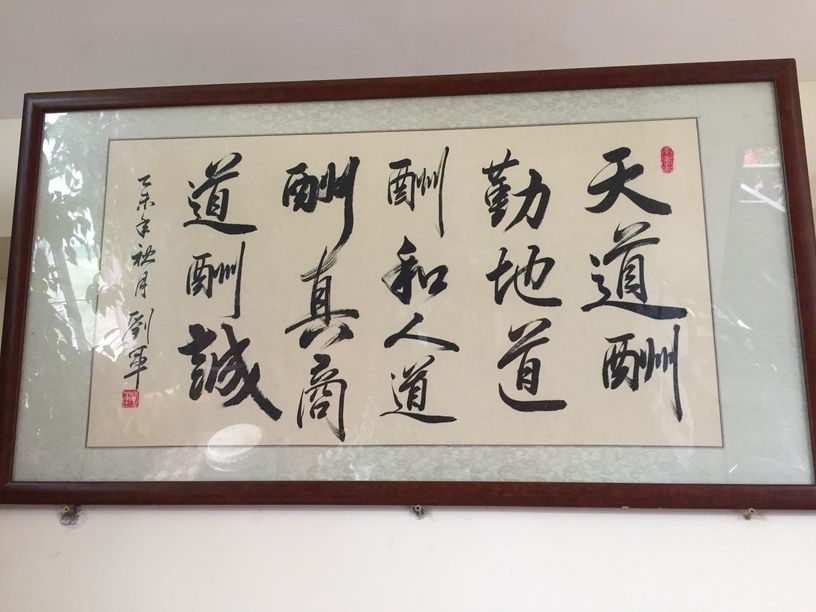 天道酬
勤地道
酬和人道
酬真商
道酬誠
乙未年秋月劉軍